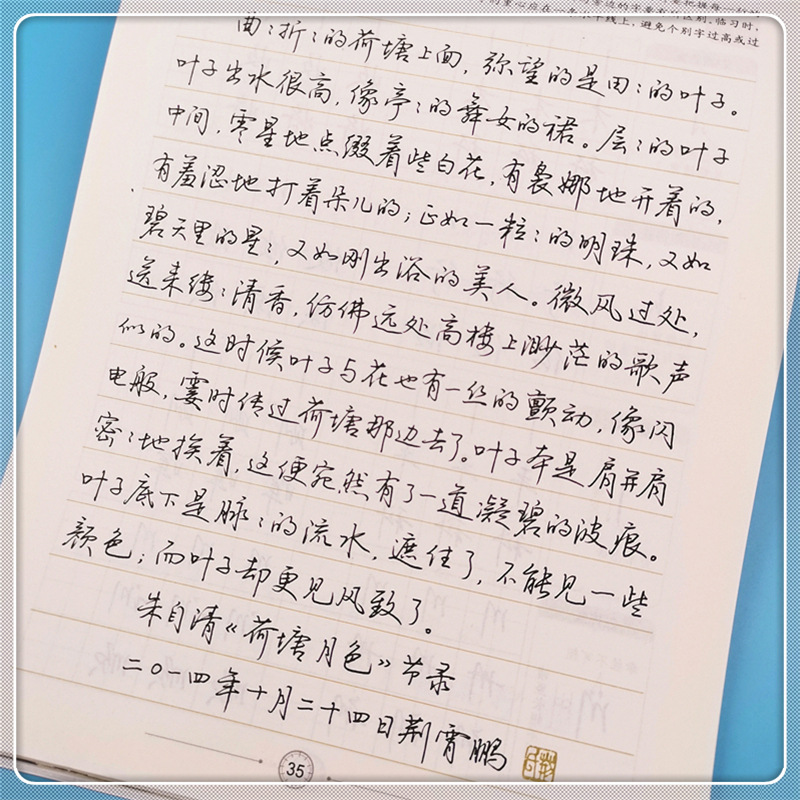 的重心应在一条水平线上，避免个别字过高或过
曲：折：的荷塘上面，弥望的是田：的叶子。
叶子出水很高，像亭：的舞女的裙。层：的叶子
中间，零星地点缀着些白花，有袅娜地开着的，
有羞涩地打着朵儿的；正如一粒：的明珠，又如
碧天里的星：，又如刚出浴的美人。微风过处，
送来缕：清香，仿佛远处高楼上渺茫的歌声
似的。这时候叶子与花也有一丝的颤动，像闪
电般，霎时传过荷塘那边去了。叶子本是肩并肩
密：地挨着，这便宛然有了一道凝碧的波痕。
叶子底下是脉：的流水，遮住了，不能见一些
颜色；而叶子却更见风致了。
朱自清《荷塘月色》节录
二〇一四年十月二十四日荆霄鹏
35